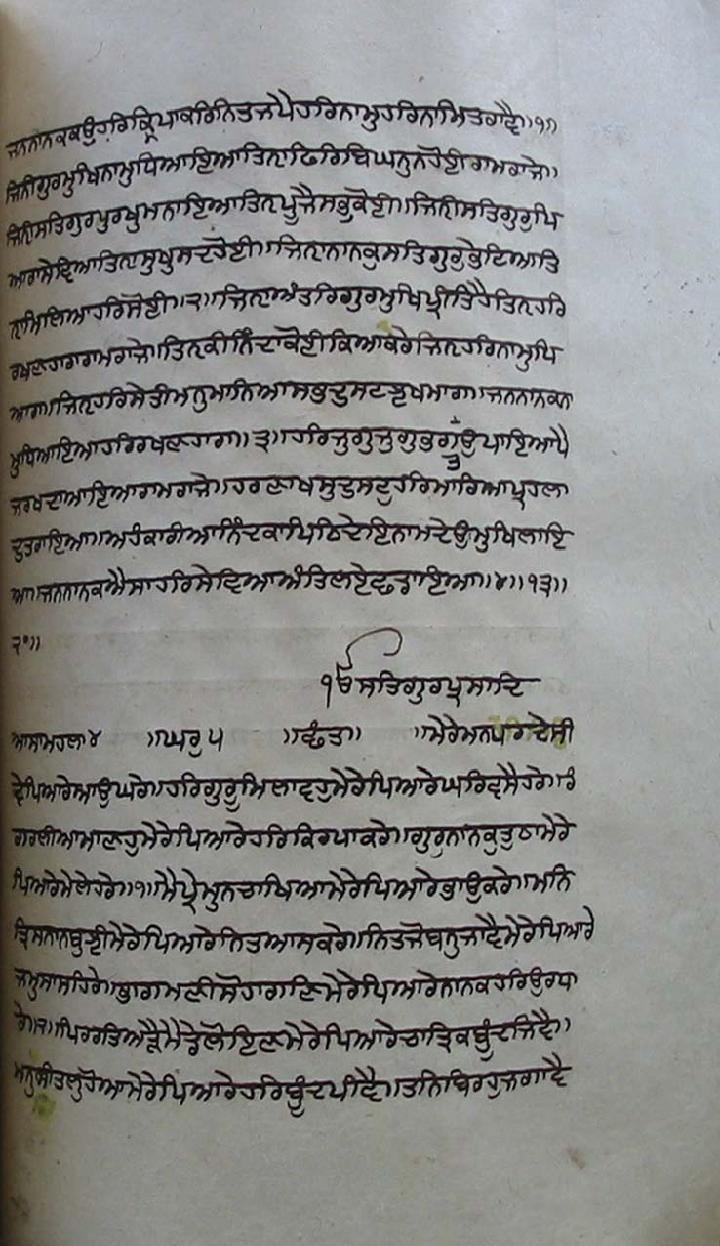 ਜਨਨਾਨਕਕਉਹਰਿਕ੍ਰਿਪਾਕਰਿਨਿਤਜਪੈਹਰਿਨਾਮੁਹਰਿਨਾਮਿਤਰਾਵੈ॥੧॥
ਜਿਨੀਗੁਰਮੁਖਿਨਾਮੁਧਿਆਇਆਤਿਨਾਫਿਰਿਬਿਘਨੁਨਹੋਈਰਾਮਰਾਜੇ॥
ਜਿਨੀਸਤਿਗੁਰਪੁਰਖੁਮਨਾਇਆਤਿਨਪੂਜੈਸਭੁਕੋਈ॥ਜਿਨੀਸਤਿਗੁਰੁਪਿ
ਆਰਾਸੇਵਿਆਤਿਨਾਸੁਖੁਸਦਹੋਈ॥ਜਿਨਾਨਾਨਕੁਸਤਿਗੁਰੁਭੇਟਿਆਤਿ
ਨਾਮਿਲਿਆਹਰਿਸੋਈ॥੨॥ਜਿਨਾਅੰਤਰਿਗੁਰਮੁਖਿਪ੍ਰੀਤਿਹੈਤਿਨਹਰਿ
ਰਖਣਹਾਰਾਰਾਮਰਾਜੇ॥ਤਿਨਕੀਨਿੰਦਾਕੋਈਕਿਆਕਰੇਜਿਨਹਰਿਨਾਮੁਪਿ
ਆਰਾ॥ਜਿਨਹਰਿਸੇਤੀਮਨੁਮਾਨਿਆਸਭਦੁਸਟਝਖਮਾਰਾ॥ਜਨਨਾਨਕਨਾ
ਮੁਧਿਆਇਆਹਰਿਰਖਣਹਾਰਾ॥੩॥ਹਰਿਜੁਗੁਜੁਗੁਭਗਤਉਪਾਇਆਪੈ
ਜਰਖਦਾਆਇਆਰਾਮਰਾਜੇ॥ਹਰਣਾਖਸੁਦੁਸਟੁਹਰਿਮਾਰਿਆਪ੍ਰਹਲਾ
ਦੁਤਰਾਇਆ॥ਅਹੰਕਾਰੀਆਨਿੰਦਕਾਪਿਠਿਦੇਇਨਾਮਦੇਉਮੁਖਿਲਾਇ
ਆ॥ਜਨਨਾਨਕਐਸਾਹਰਿਸੇਵਿਆਅੰਤਿਲਏਛਡਾਇਆ॥੪॥੧੩॥
੨੦॥
ੴਸਤਿਗੁਰਪ੍ਰਸਾਦਿ
ਆਸਾਮਹਲਾ੪ ॥ਘਰੁ੫ ॥ਛੰਤ॥ ॥ਮੇਰੇਮਨਪਰਦੇਸੀ
ਵੇਪਿਆਰੇਆਉਘਰੇ॥ਹਰਿਗੁਰੂਮਿਲਾਵਹੁਮੇਰੇਪਿਆਰੇਘਰਿਵਸੈਹਰੇ॥ਰੰ
ਗਰਲੀਆਮਾਣਹੁਮੇਰੇਪਿਆਰੇਹਰਿਕਿਰਪਾਕਰੇ॥ਗੁਰੁਨਾਨਕੁਤੁਠਾਮੇਰੇ
ਪਿਆਰੇਮੇਲੇਹਰੇ॥੧॥ਮੈਪ੍ਰੇਮੁਨਚਾਖਿਆਮੇਰੇਪਿਆਰੇਭਾਉਕਰੇ॥ਮਨਿ
ਤ੍ਰਿਸਨਾਨਬੁਝੀਮੇਰੇਪਿਆਰੇਨਿਤਆਸਕਰੇ॥ਨਿਤਜੋਬਨੁਜਾਵੈਮੇਰੇਪਿਆਰੇ
ਜਮੁਸਾਸਹਿਰੇ॥ਭਾਗਮਣੀਸੋਹਾਗਣਿਮੇਰੇਪਿਆਰੇਨਾਨਕਹਰਿਉਰਧਾ
ਰੇ॥੨॥ਪਿਰਰਤਿਅੜੈਮੈਡੇਲੋਇਣਮੇਰੇਪਿਆਰੇਚਾਤ੍ਰਿਕਬੂੰਦਜਿਵੈ॥
ਮਨੁਸੀਤਲੁਹੋਆਮੇਰੇਪਿਆਰੇਹਰਿਬੂੰਦਪੀਵੈ॥ਤਨਿਬਿਰਹੁਜਗਾਵੈ